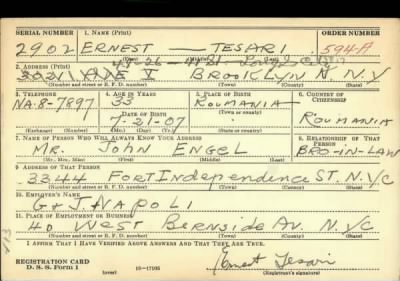 SERIAL NUMBER 1. NAME (Print) ORDER NUMBER
2902 ERNEST — TESARI 594-A
(First) (Middle) (Last)
48-26-41 St. City
2. ADDRESS (Print)
3021 AVE V BROOKLYN N.Y
(Number and street or R. F. D. number) (Town) (County) (State)
3. TELEPHONE 4. AGE IN YEARS 5. PLACE OF BIRTH 6. COUNTRY OF CITIZENSHIP
NA.8-7897 33 ROUMANIA
DATE OF BIRTH (Town or county)
7-21-07 ROUMANIA
(Exchange) (Number) (Mo.) (Day) (Yr.) (State or country)
7. NAME OF PERSON WHO WILL ALWAYS KNOW YOUR ADDRESS 8. RELATIONSHIP OF THAT PERSON
MR. JOHN ENGEL BRO-IN-LAW
(Mr., Mrs., Miss) (First) (Middle) (Last)
9. ADDRESS OF THAT PERSON
3344 FORT INDEPENDENCE ST. NYC
(Number and street or R. F. D. number) (Town) (County) (State)
10. EMPLOYER'S NAME
G & J. NAPOLI
11. PLACE OF EMPLOYMENT OR BUSINESS
40 WEST BERNSIDE AV. NYC
(Number and street or R. F. D. number) (Town) (County) (State)
I AFFIRM THAT I HAVE VERIFIED ABOVE ANSWERS AND THAT THEY ARE TRUE.
REGISTRATION CARD
D. S. S. Form 1 (over) 16-17105 Ernest Tesari
(Registrant's signature)